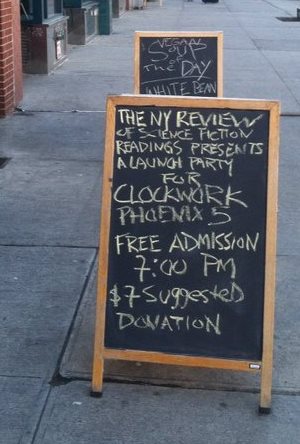 VEGAN
SOUP
OF
THE DAY
WHITE BEAN
THE NY REVIEW
OF SCIENCE FICTION
READINGS PRESENTS
A LAUNCH PARTY
FOR
CLOCKWORK
PHOENIX 5
FREE ADMISSION
7:00 PM
$7 SUGGESTED
DONATION